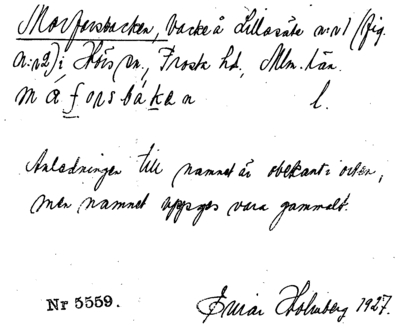 Morforsbacken, backe å Lillasäte n:r 1 (fig.
n:r 2) i Hörs sn., Frosta hd., Mlm. län.
m á f o r s b á k a n l.
Anledningen till namnet är obekant i orten,
men namnet uppges vara gammalt.
Nr 5559.
Einar Holmberg 1927.